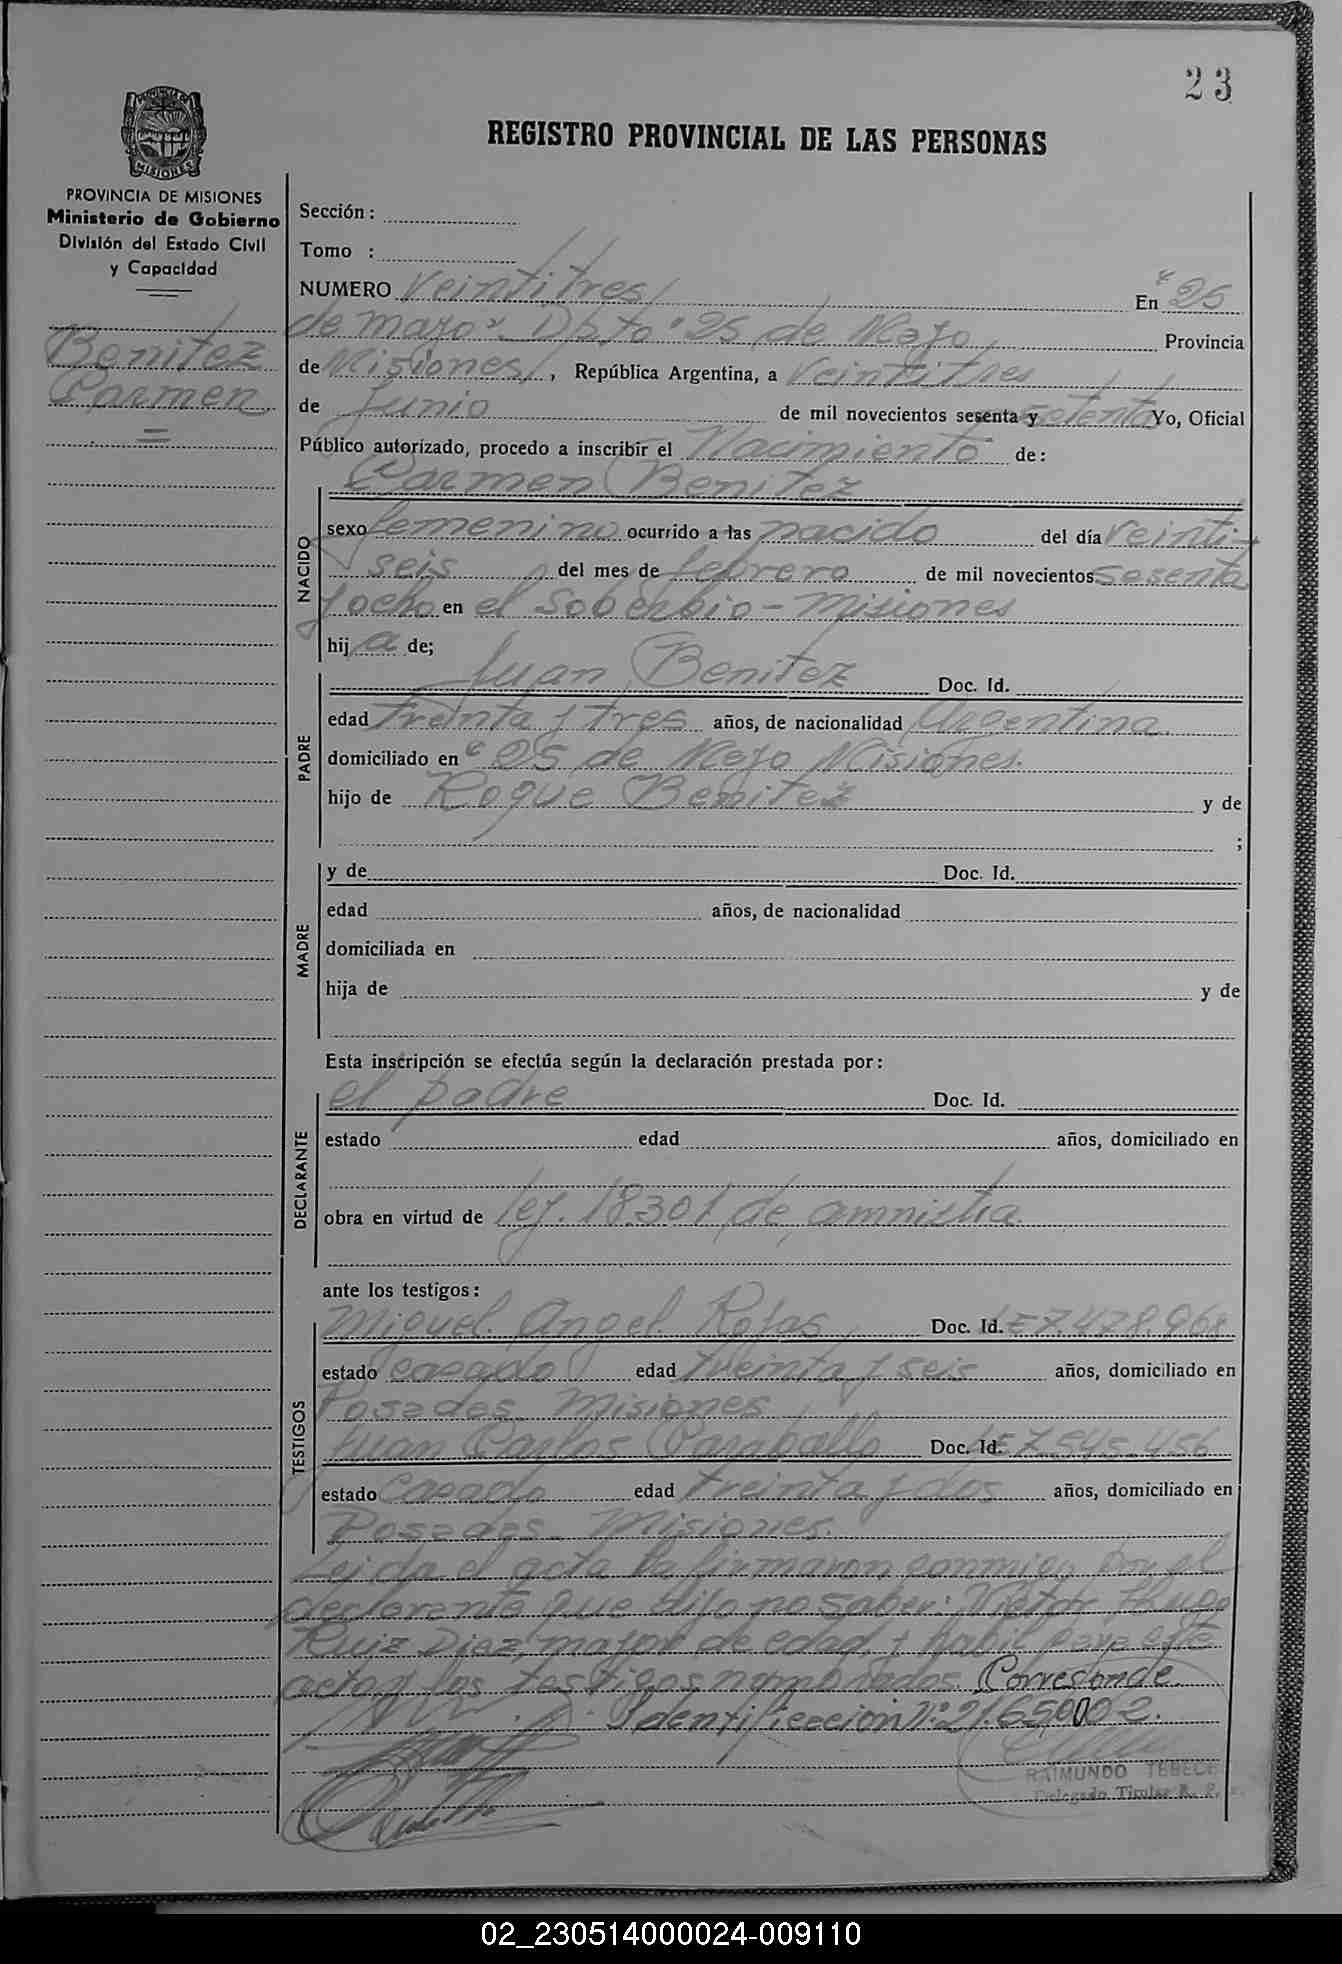 23
REGISTRO PROVINCIAL DE LAS PERSONAS
PROVINCIA DE MISIONES
PROVINCIA DE MISIONES
Ministerio de Gobierno
División del Estado Civil
y Capacidad
Benitez
Carmen
=
Sección:
Tomo :
NUMERO Veintitres En "25
de mayo". Dpto "25 de Mayo Provincia
de Misiones, República Argentina, a Veintitres
de Junio de mil novecientos sesenta y setenta Yo, Oficial
Público autorizado, procedo a inscribir el Nacimiento de:
Carmen Benitez
NACIDO
sexo femenino ocurrido a las nacido del día veinti-
seis del mes de febrero de mil novecientos sesenta
y ocho en el Soberbio - Misiones
hija de;
Juan Benitez Doc. Id.
PADRE
edad treinta y tres años, de nacionalidad Argentina.
domiciliado en "25 de Mayo Misiones.
hijo de Roque Benitez y de
;
MADRE
y de Doc. Id.
edad años, de nacionalidad
domiciliada en
hija de y de
Esta inscripción se efectúa según la declaración prestada por:
DECLARANTE
el padre Doc. Id.
estado edad años, domiciliado en
obra en virtud de ley. 18.301 de amnistia.
ante los testigos:
TESTIGOS
Miguel Angel Rojas Doc. Id. LE 7.478.968
estado casado edad treinta y seis años, domiciliado en
Posadas Misiones
Juan Carlos Caraballo Doc. Id. LE 7.545.456
estado casado edad treinta y dos años, domiciliado en
Posadas - Misiones.
Leida el acta la firmaron conmigo por el
declarante que dijo no saber: Victor Hugo
Ruiz Diaz, mayor de edad y habil para este
acto y los testigos nombrados. Corresonde
Identificeccion Nº 21.650.002.
RAIMUNDO
Delegado Titular R. P.
02_230514000024-009110